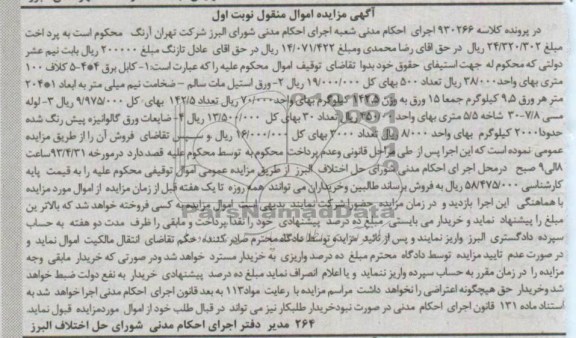 آگهی مزایده اموال منقول نوبت اول
در پرونده کلاسه ۹۳۰۲۶۶ اجرای احکام مدنی شعبه اجرای احکام مدنی شورای البرز شرکت تهران آرنگ محکوم است به پرداخت
مبلغ ۲۴/۳۲۰/۳۰۲ ریال در حق اقای رضا محمدی ومبلغ ۱۴/۰۷۱/۴۲۲ ریال در حق اقای عادل تازنگ مبلغ ۲۰۰۰۰۰ ریال بابت نیم عشر
دولتی که محکوم له جهت استیفای حقوق خود بدوا تقاضای توقیف اموال محکوم علیه را که عبارت است:۱- کابل برق ۴*۴-۵ کلاف ۱۰۰
متری بهای واحد ۳۸/۰۰۰ ریال تعداد ۵۰۰ بهای کل ۱۹/۰۰۰/۰۰۰ ریال ۲-ورق استیل مات سالم - ضخامت نیم میلی متر به ابعاد ۱*۲۰۴
متر هر ورق ۹,۵ کیلوگرم جمعا ۱۵ ورق به وزن ۱۴۲/۵ کیلوگرم بهای واحد ۷۰/۰۰۰ ریال تعداد ۱۴۲/۵ بهای کل ۹/۹۷۵/۰۰۰ ریال ۳- لوله
مسی ۷/۸-۳۰ شاخه ۵/۵ متری بهای واحد ۴۵۰/۰۰۰ ریال تعداد ۳۰ بهای کل ۱۳/۵۰۰/۰۰۰ ریال ۴- ضایعات ورق گالوانیزه پیش رنگ شده
حدودا ۲۰۰۰ کیلوگرم بهای واحد ۸/۰۰۰ ریال تعداد ۲۰۰۰ بهای کل ۱۶/۰۰۰/۰۰۰ ریال و سپس تقاضای فروش آن را از طریق مزایده
عمومی نموده است که این اجرا پس از طی مراحل قانونی وعدم پرداخت محکوم به توسط محکوم علیه قصددارد درمورخه ۹۳/۴/۳۱ ساعت
۸الی۹ صبح درمحل اجرای احکام مدنی شورای حل اختلاف البرز از طریق مزایده عمومی اموال توقیفی محکوم علیه را به قیمت پایه
کارشناسی ۵۸/۴۷۵/۰۰۰ ریال به فروش برساند طالبین وخریداران می توانند همه روزه تا یک هفته قبل از زمان مزایده از اموال مورد مزایده
با هماهنگی این اجرا بازدید و در زمان مزایده حضور/شرکت نمایند بدیهی است اموال مزایده به کسی فروخته خواهد شد که بالاترین
مبلغ را پیشنهاد نماید و خریدار می بایستی مبلغ ده درصد پیشنهادی خود را نقدا پرداخت و مابقی را ظرف مدت دو هفته به حساب
سپرده دادگستری البرز واریز نمایند و پس از تائید مزایده توسط دادگاه محترم صادر کننده حکم تقاضای انتقال مالکیت اموال نماید و
در صورت عدم تایید مزایده توسط دادگاه محترم مبلغ ده درصد واریزی به خریدار مسترد خواهد شد ودر صورتی که خریدار مابقی وجه
مزایده را در زمان مقرر به حساب سپرده واریز ننماید و یا اعلام انصراف نماید مبلغ ده درصد پیشنهادی خریدار به نفع دولت ضبط خواهد
شد وخریدار حق هیچگونه اعتراضی را نخواهد داشت مراسم مزایده با رعایت مواد۱۱۳ به بعد قانون اجرای احکام مدنی اجرا خواهد شد به
استناد ماده ۱۳۱ قانون اجرای احکام مدنی در صورت نبود خریدار طلبکار نیز می تواند در قبال طلب خود از اموال موردمزایده قبول نماید.
۲۶۴ مدیر دفتر اجرای احکام مدنی شورای حل اختلاف البرز
ParsNamadData